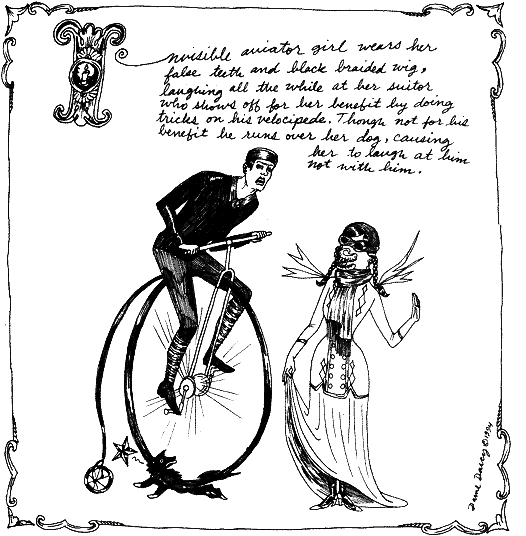 Invisible aviator girl wears her
false teeth and black braided wig,
laughing all the while at her suitor
who shows off for her benefit by doing
tricks on his velocipede. Though not for his
benefit he runs over her dog, causing
her to laugh at him
not with him.
Dame Darcy © 1994